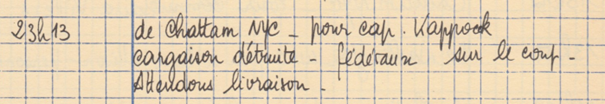 23h13 de Chattam NYC - pour cap. Kappock
cargaison détruite - fédéraux sur le coup -
Attendons livraison -